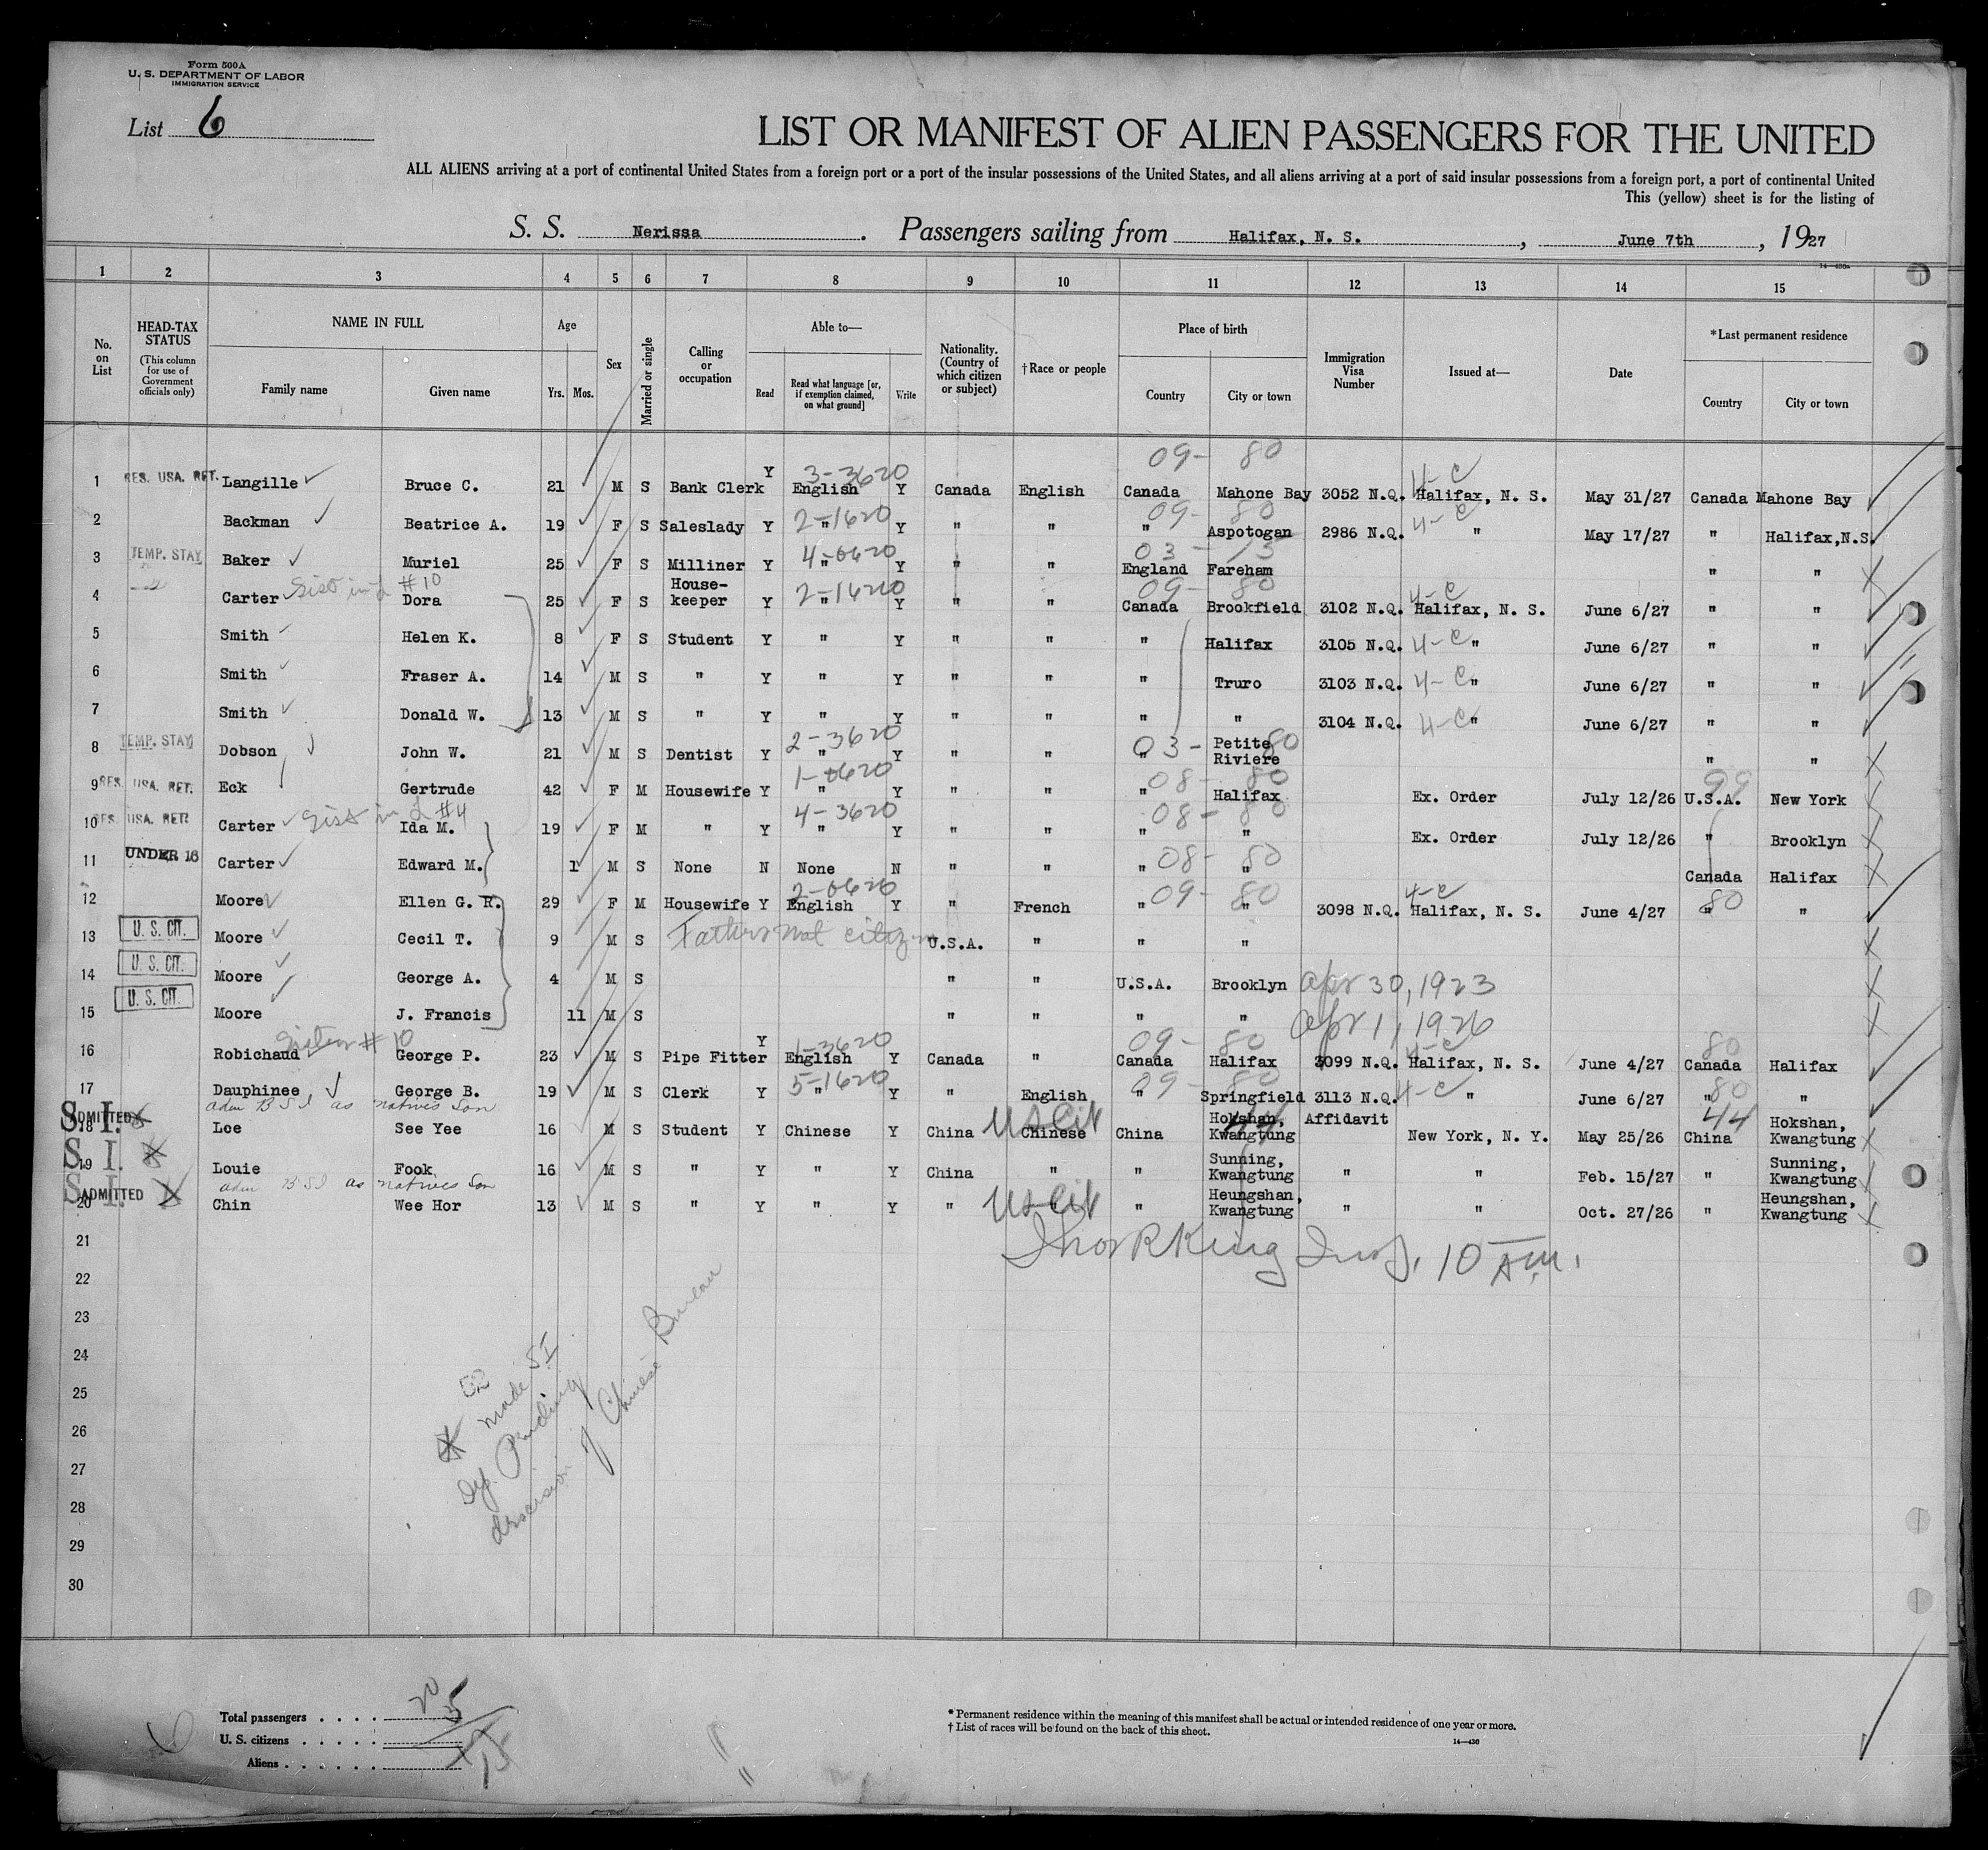 Form 500A
U. S. DEPARTMENT OF LABOR
IMMIGRATION SERVICE
List 6
LIST OR MANIFEST OF ALIEN PASSENGERS FOR THE UNITED
ALL ALIENS arriving at a port of continental United States from a foreign port or a port of the insular possessions of the United States, and all aliens arriving at a port of said insular possessions from a foreign port, a port of continental United
This (yellow) sheet is for the listing of
S. S. Nerissa. Passengers sailing from Halifax, N. S., June 7th, 1927
14—430a
1 2 3 4 5 6 7 8 9 10 11 12 13 14 15
No. on List
HEAD-TAX STATUS (This column for use of Government officials only)
NAME IN FULL Family name Given name
Age Yrs. Mos.
Sex
Married or single
Calling or occupation
Able to— Read Read what language [or, if exemption claimed, on what ground] Write
Nationality. (Country of which citizen or subject)
†Race or people
Place of birth Country City or town
Immigration Visa Number
Issued at—
Date
*Last permanent residence Country City or town
09- 80
1 RES. USA. RET. Langille Bruce C. 21 M S Bank Clerk Y 3-3620 English Y Canada English Canada Mahone Bay 3052 N.Q. 4-C Halifax, N. S. May 31/27 Canada Mahone Bay
2 Backman Beatrice A. 19 F S Saleslady Y 2-1620 " Y " " 09- 80 " Aspotogan 2986 N.Q. 4-C " May 17/27 " Halifax,N.S.
3 TEMP. STAY Baker Muriel 25 F S Milliner Y 4-0620 " Y " " 03-15 England Fareham " "
4 Carter Sist in L #10 Dora 25 F S House-keeper Y 2-1620 " Y " " 09- 80 Canada Brookfield 3102 N.Q. 4-C Halifax, N. S. June 6/27 " "
5 Smith Helen K. 8 F S Student Y " Y " " " Halifax 3105 N.Q. 4-C " June 6/27 " "
6 Smith Fraser A. 14 M S " Y " Y " " " Truro 3103 N.Q. 4-C " June 6/27 " "
7 Smith Donald W. 13 M S " Y " Y " " " " 3104 N.Q. 4-C " June 6/27 " "
8 TEMP. STAY Dobson John W. 21 M S Dentist Y 2-3620 " Y " " 03- 80 " Petite Riviere " "
9 RES. USA. RET. Eck Gertrude 42 F M Housewife Y 1-0620 " Y " " 08- 80 " Halifax Ex. Order July 12/26 99 U.S.A. New York
10 RES. USA. RET. Carter Sist in L #4 Ida M. 19 F M " Y 4-3620 " Y " " 08- 80 " " Ex. Order July 12/26 " Brooklyn
11 UNDER 16 Carter Edward M. 1 M S None N None N " " 08- 80 " " Canada Halifax
12 Moore Ellen G. R. 29 F M Housewife Y 2-0620 English Y " French 09- 80 " " 3098 N.Q. 4-C Halifax, N. S. June 4/27 80 " "
13 U. S. CIT. Moore Cecil T. 9 M S Fathers nat citizen U.S.A. " " "
14 U. S. CIT. Moore George A. 4 M S " " U.S.A. Brooklyn Apr 30, 1923
15 U. S. CIT. Moore J. Francis 11 M S " " " " Apr 1, 1926
16 Robichaud # 10 George P. 23 M S Pipe Fitter Y 1-3620 English Y Canada " 09- 80 Canada Halifax 3099 N.Q. 4-C Halifax, N. S. June 4/27 80 Canada Halifax
17 Dauphinee George B. 19 M S Clerk Y 5-1620 " Y " English 09- 80 " Springfield 3113 N.Q. 4-C " June 6/27 80 " "
S. I. ADMITTED adm BSI as natives son
18 Loe See Yee 16 M S Student Y Chinese Y China US Cit Chinese China Hokshan, Kwangtung 44 Affidavit New York, N. Y. May 25/26 44 China Hokshan, Kwangtung
S. I.
19 Louie Fook 16 M S " Y " Y China " " Sunning, Kwangtung " " Feb. 15/27 " Sunning, Kwangtung
S. I. ADMITTED adm BSI as natives son
20 Chin Wee Hor 13 M S " Y " Y " US Cit " " Heungshan, Kwangtung " " Oct. 27/26 " Heungshan, Kwangtung
21 10 AM.
22
23
24
25
26
27
28
29
30
made SI
Pending
of Chinese Bureau
Total passengers . . . . 20
U. S. citizens . . . . . 5
Aliens . . . . . . 15
* Permanent residence within the meaning of this manifest shall be actual or intended residence of one year or more.
† List of races will be found on the back of this sheet.
14—430